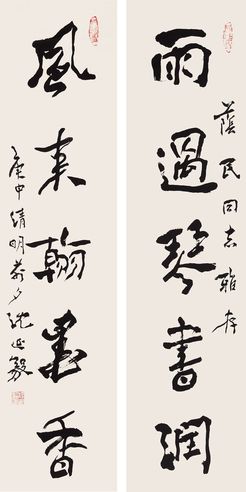 雨過琴書潤
蔭民同志雅存
風來翰墨香
庚申清明前夕沈延毅